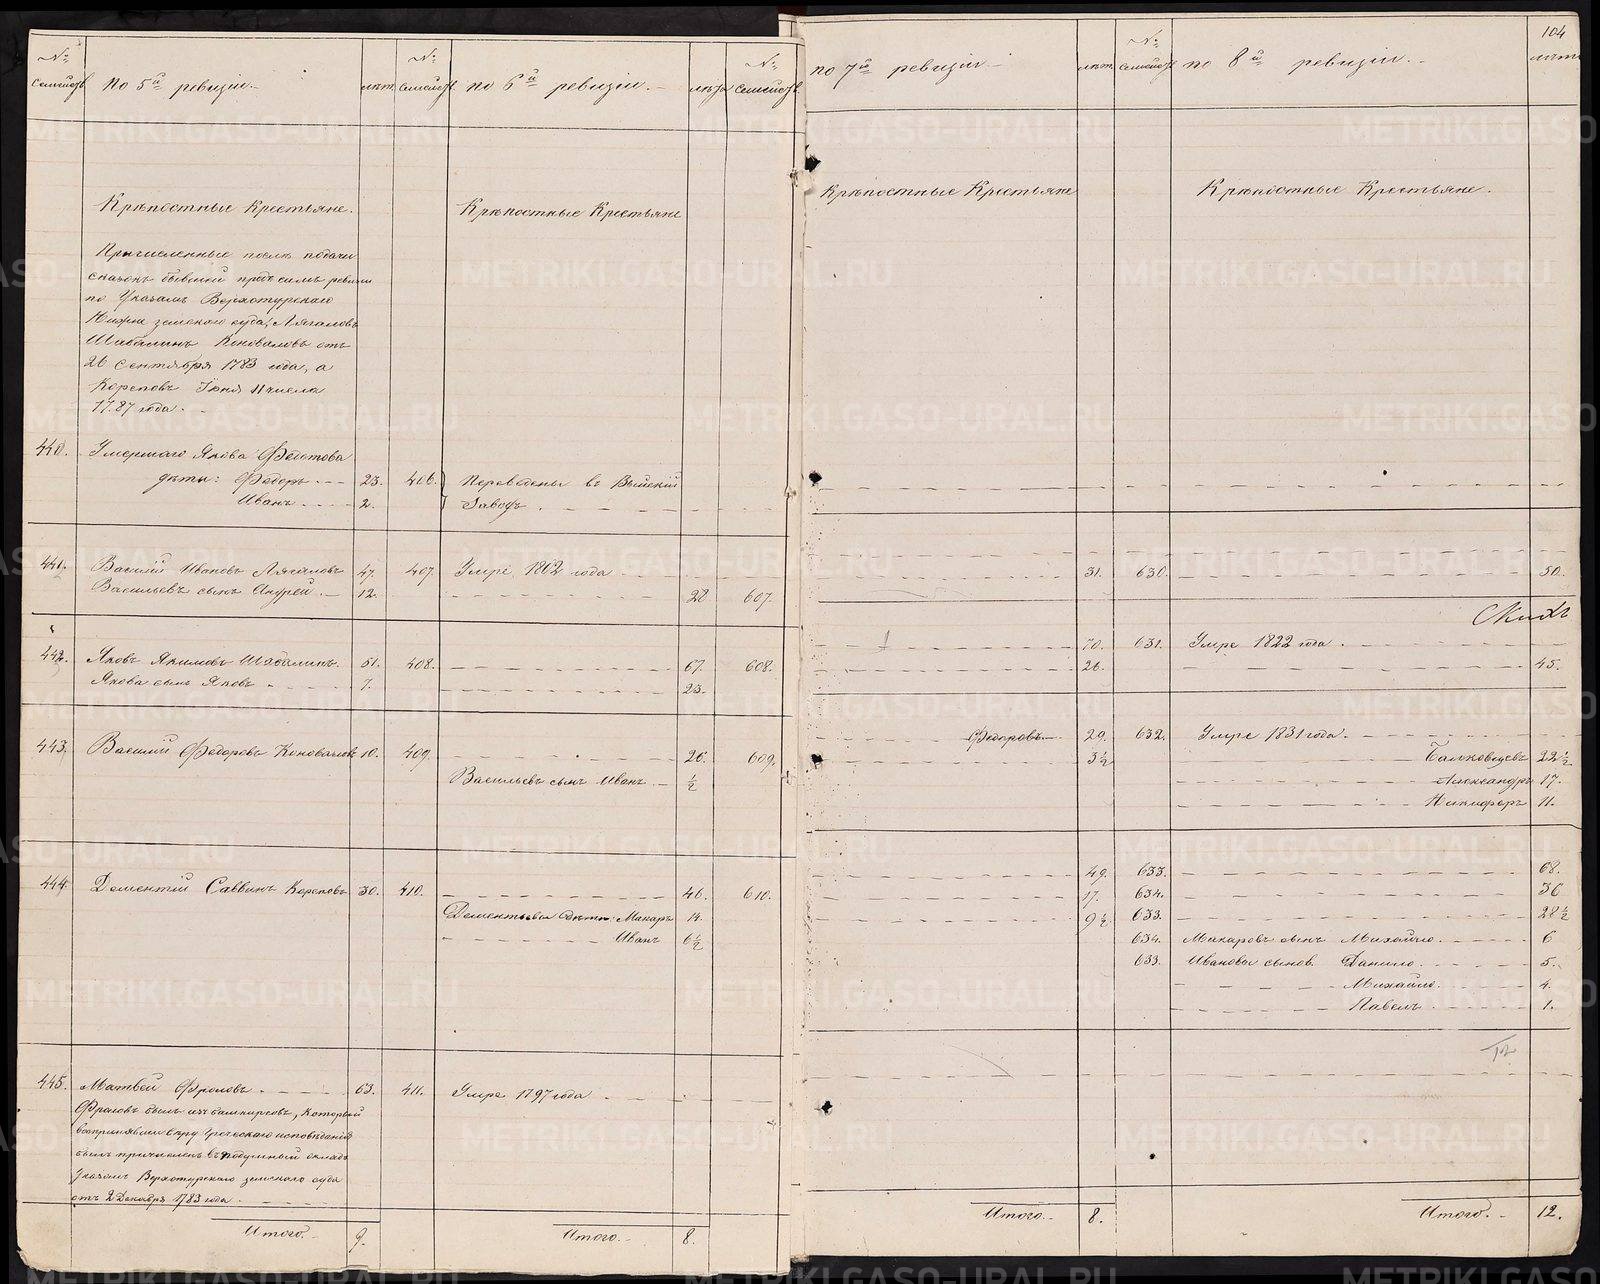 104
№ семейств
по 5й ревизіи
лѣт
№ семейств
по 6й ревизіи.
лѣта
№ семейств.
по 7й ревизіи
лѣт.
№ семейств
по 8й ревизіи.
лѣта
Крѣпостные Крестьяне.
Крѣпостные Крестьяне
Крѣпостные Крестьяне
Крѣпостные Крестьяне.
Причисленные послѣ подачи
сказокъ бывшей предъ симъ ревизіи
по Указамъ Верхотурскаго
Нижне земскаго суда; Лягаловъ
Шабалинъ Коноваловъ отъ
26 Сентября 1783 года, а
Кореповъ Іюня 11 числа
1787 года.
440. Умершаго Якова Федотова
дѣти: Федоръ 23. 406. Переведены въ Выйскій
Иванъ 2. Заводъ.
441. Василій Ивановъ Лягаловъ 47. 407. Умре 1802 года 31. 630. 50.
Васильевъ сынъ Андрей 12. 28 607.
Скихъ
442. Яковъ Якимовъ Шабалинъ. 51. 408. 67. 608. 70. 631. Умре 1822 года.
Якова сынъ Яковъ 7. 23. 26. 45.
443. Василій Федоровъ Коноваловъ 10. 409. 26. 609. Федоровъ 29. 632. Умре 1831 года.
Васильевъ сынъ Иванъ ½ 3½ Башковцевъ 22½
Александръ 17.
Никифоръ 11.
444. Дементій Саввинъ Кореповъ 30. 410. 46. 610. 49. 633. 68.
Дементьева дѣти: Макаръ 14. 17. 634. 36
Иванъ 6½ 9½ 633. 28½
634. Макаровъ сынъ Михайло. 6
633. Ивановы сынов. Данило. 5.
Михайло. 4.
Павелъ 1.
445. Матвей Фроловъ 63. 411. Умре 1797 года
Фроловъ былъ изъ башкирцовъ, который
воспринявши вѣру Греческаго исповѣданія
былъ причисленъ въ подушный окладъ
Указомъ Верхотурскаго земскаго суда
отъ 2 Декабря 1783 года
Итого. 9.
Итого. 8.
Итого. 8.
Итого. 12.
METRIKI.GASO-URAL.RU